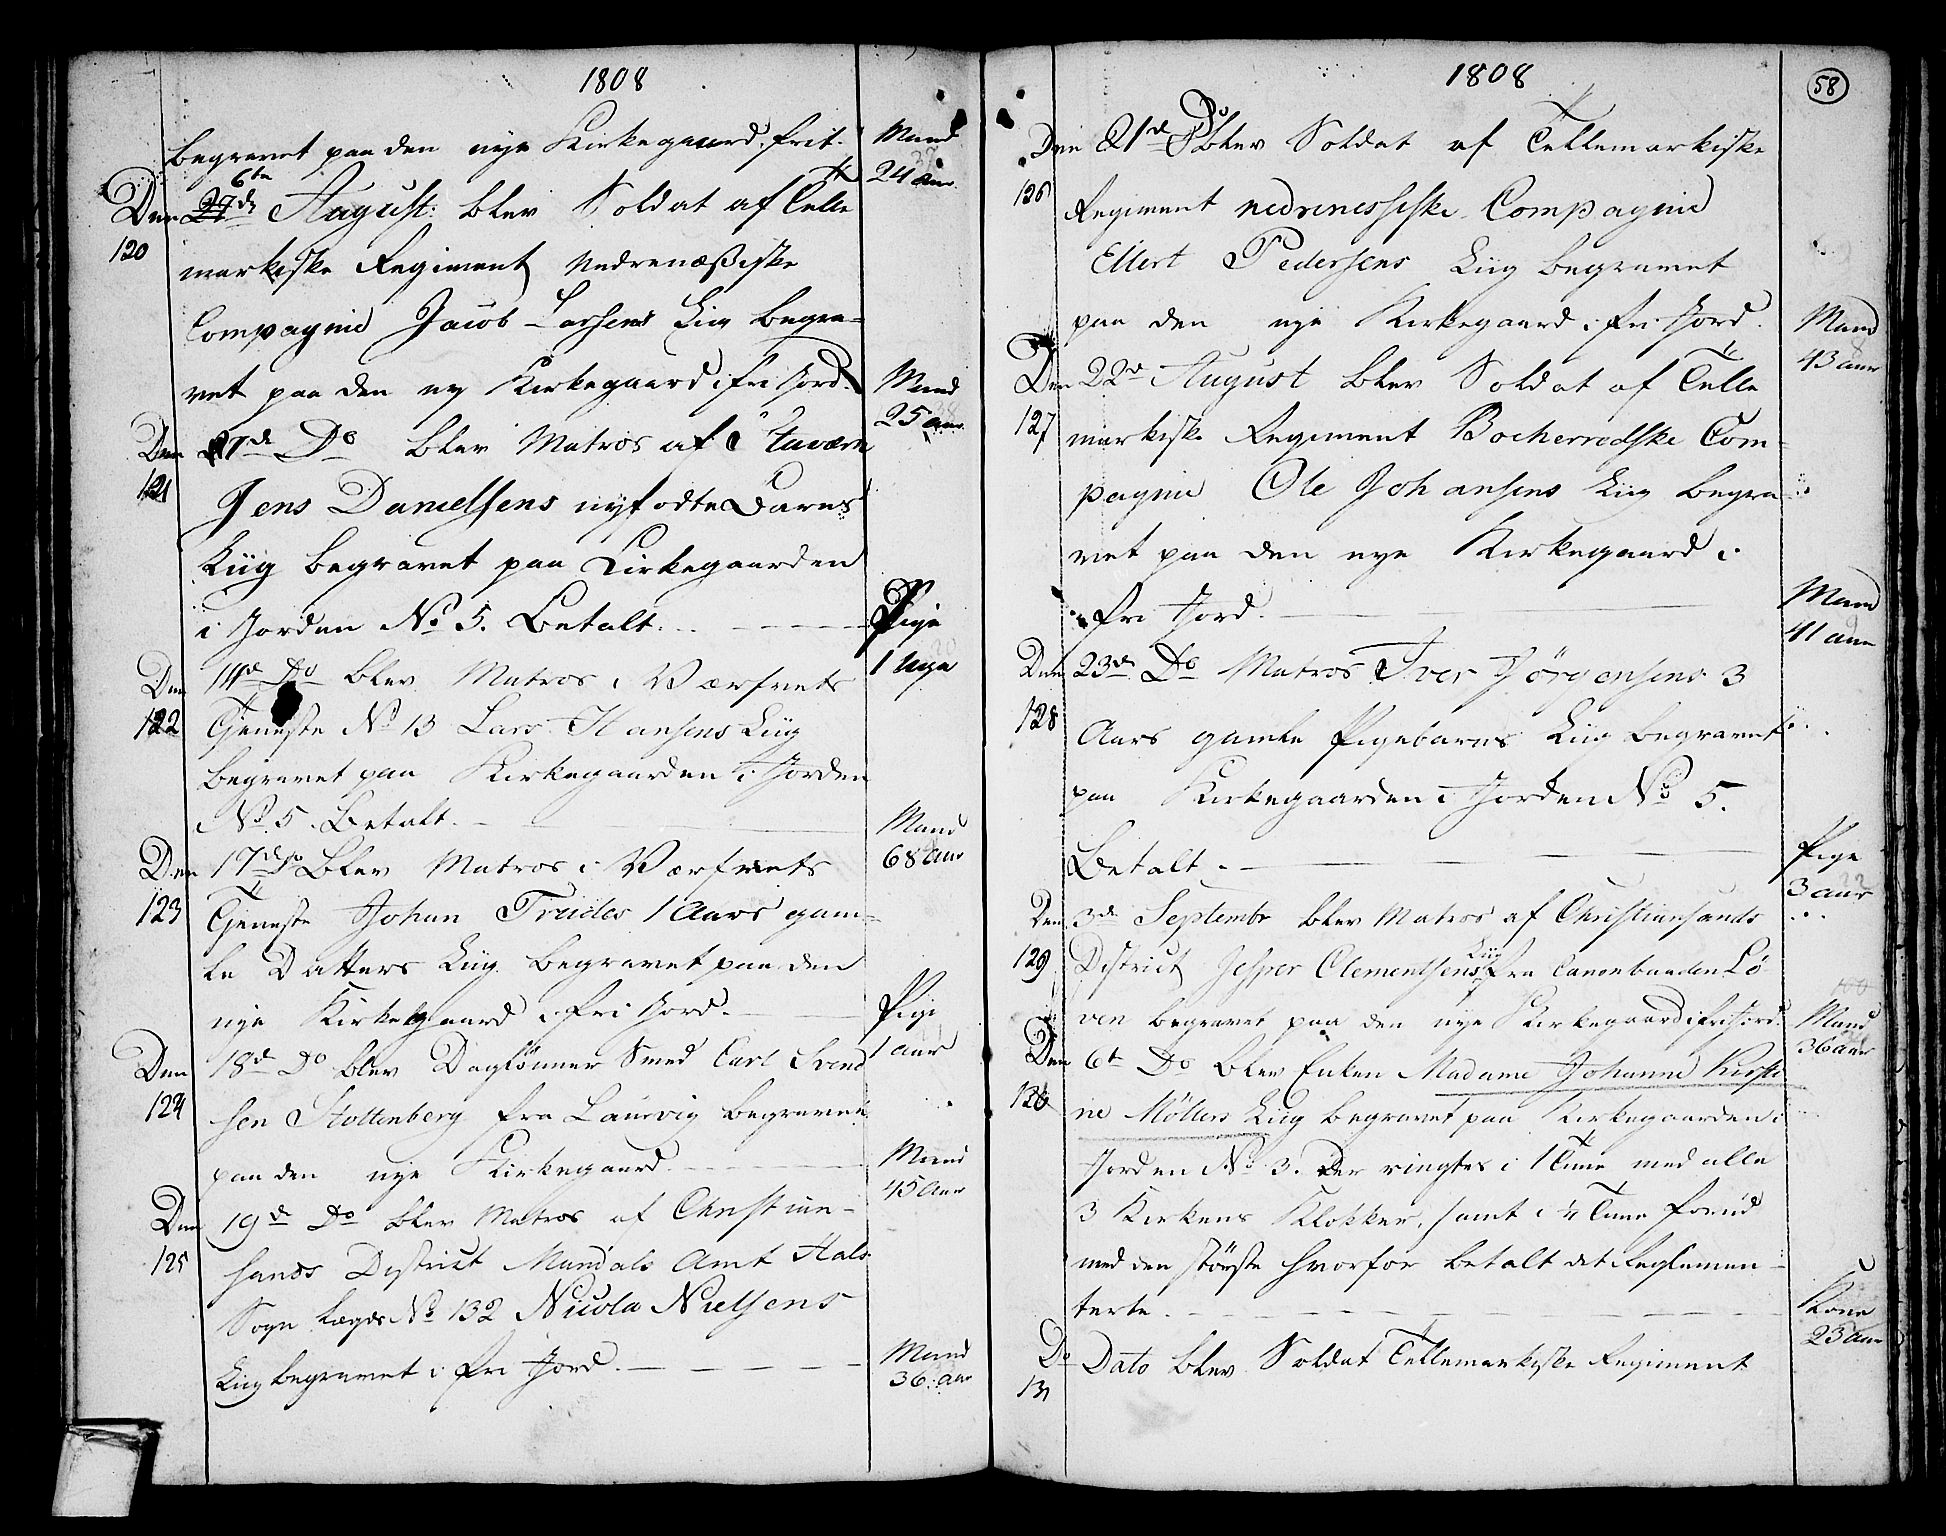 1808
begravet paa den nye Kirkegaard, frit. Mand
24 aar
Den 6te August blev Soldat af Telle
120
markiske Regiment Nedrenæssiske
Compagnie Jacob Larsens Liig begra-
vet paa den ny Kirkegaard i fri Jord. Mand
25 aar
Den 7de Do blev Matros af Staværn
121
Jens Danielsens nyfødte Barns
Liig begravet paa Kirkegaarden
i Jorden No 5. Betalt. Pige
1 Uge
Den 11d Do blev Matros i Værfvets
122
Tjeneste No 13 Lars Hansens Liig
begravet paa Kirkegaarden i Jorden
No 5. Betalt. Mand
68 aar
Den 17d Do blev Matros i Værfvets
123
Tjeneste Johan Truder 1 Aars gam-
le Datters Liig begravet paa den
nye Kirkegaard i fri Jord. Pige
1 aar
Den 18d Do blev Daglønner Smed Carl Svend
124
sen Stoltenberg fra Laurvig begravet
paa den nye Kirkegaard. Mand
45 aar
Den 19d Do blev Matros af Christian-
125
sands District Mandals Amt Hals
Sogn Lægds No 132 Nicola Nielsens
Liig begravet i fri Jord. Mand
36 aar
1808
58
Den 21d Do blev Soldat af Tellemarkiske
126
Regiment nedrenessiske Compagnie
Ellert Pedersens Liig begravet
paa den nye Kirkegaard i fri Jord. Mand
43 aar
Den 22d August blev Soldat af Telle
127
markiske Regiment Bocherrødske Com-
pagnie Ole Johansens Liig begra-
vet paa den nye Kirkegaard i
fri Jord. Mand
41 aar
Den 23d Do Matros Iver Jörgensens 3
128
Aars gamle Pigebarns Liig begravet
paa Kirkegaarden i Jorden No 5.
Betalt. Pige
3 aar
Den 3d Septembr blev Matros af Christiansands
129
District Jesper Clementsens Liig fra Canonbaaden Lö
ven begravet paa den nye Kirkegaard i fri Jord. Mand
36 aar
Den 6t Do blev Enken Madame Johanne Kirsti
130
ne Möllers Liig begravet paa Kirkegaarden i
Jorden No 3. Der ringtes i 1 Time med alle
3 Kirkens Klokker, samt i ¼ Time forud
med den störste hvorfor betalt det Reglemen-
terte. Kone
23 aar
Do Dato blev Soldat Tellemarkiske Regiment
131